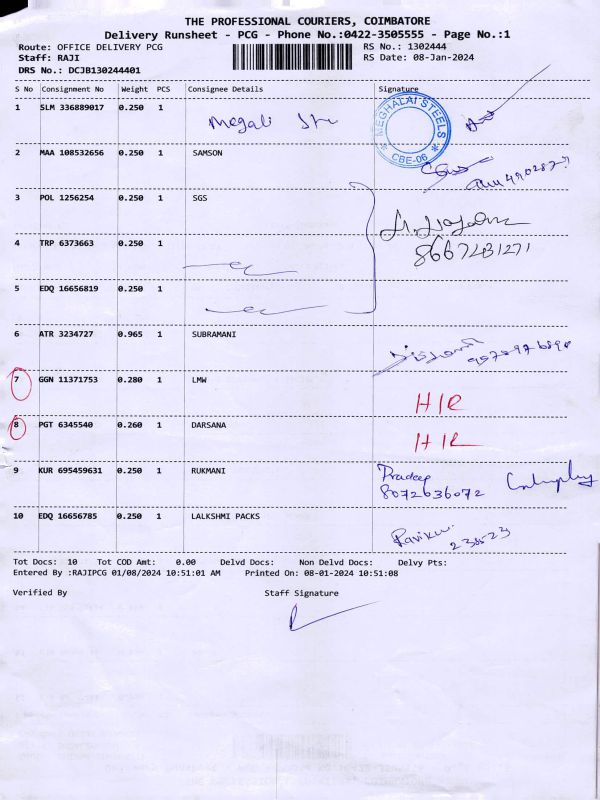 THE PROFESSIONAL COURIERS, COIMBATORE
Delivery Runsheet - PCG - Phone No.:0422-3505555 - Page No.:1
Route: OFFICE DELIVERY PCG RS No.: 1302444
Staff: RAJI RS Date: 08-Jan-2024
DRS No.: DCJB130244401
S No Consignment No Weight PCS Consignee Details Signature
1 SLM 336889017 0.250 1 Megali
MEGHALAI STEELS CBE-06
2 MAA 108532656 0.250 1 SAMSON
3 POL 1256254 0.250 1 SGS
4 TRP 6373663 0.250 1 8667231271
5 EDQ 16656819 0.250 1
6 ATR 3234727 0.965 1 SUBRAMANI
7 GGN 11371753 0.280 1 LMW H/R
8 PGT 6345540 0.260 1 DARSANA H/R
9 KUR 695459631 0.250 1 RUKMANI Pradeep
8072636072
10 EDQ 16656785 0.250 1 LALKSHMI PACKS
Tot Docs: 10 Tot COD Amt: 0.00 Delvd Docs: Non Delvd Docs: Delvy Pts:
Entered By :RAJIPCG 01/08/2024 10:51:01 AM Printed On: 08-01-2024 10:51:08
Verified By Staff Signature